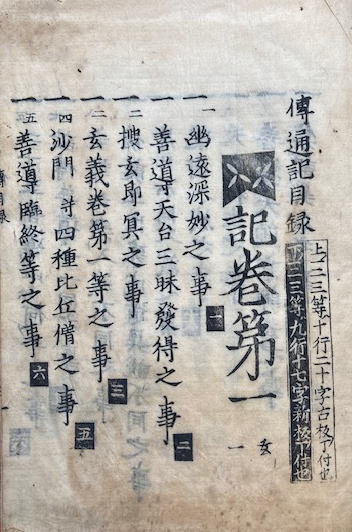 傳通記目録
上ノ二三等十行二十字古板丁付也
二三等九行十七字新板丁付也
記卷第一
玄 一
一 一 幽遠深妙之事 一
一 善導天台三昧發得之事 二
一 二 搜玄即冥之事
一 二 玄義卷第一等之事 三
一 四 沙門 四種比丘僧之事 五
一 五 善導臨終等之事 六